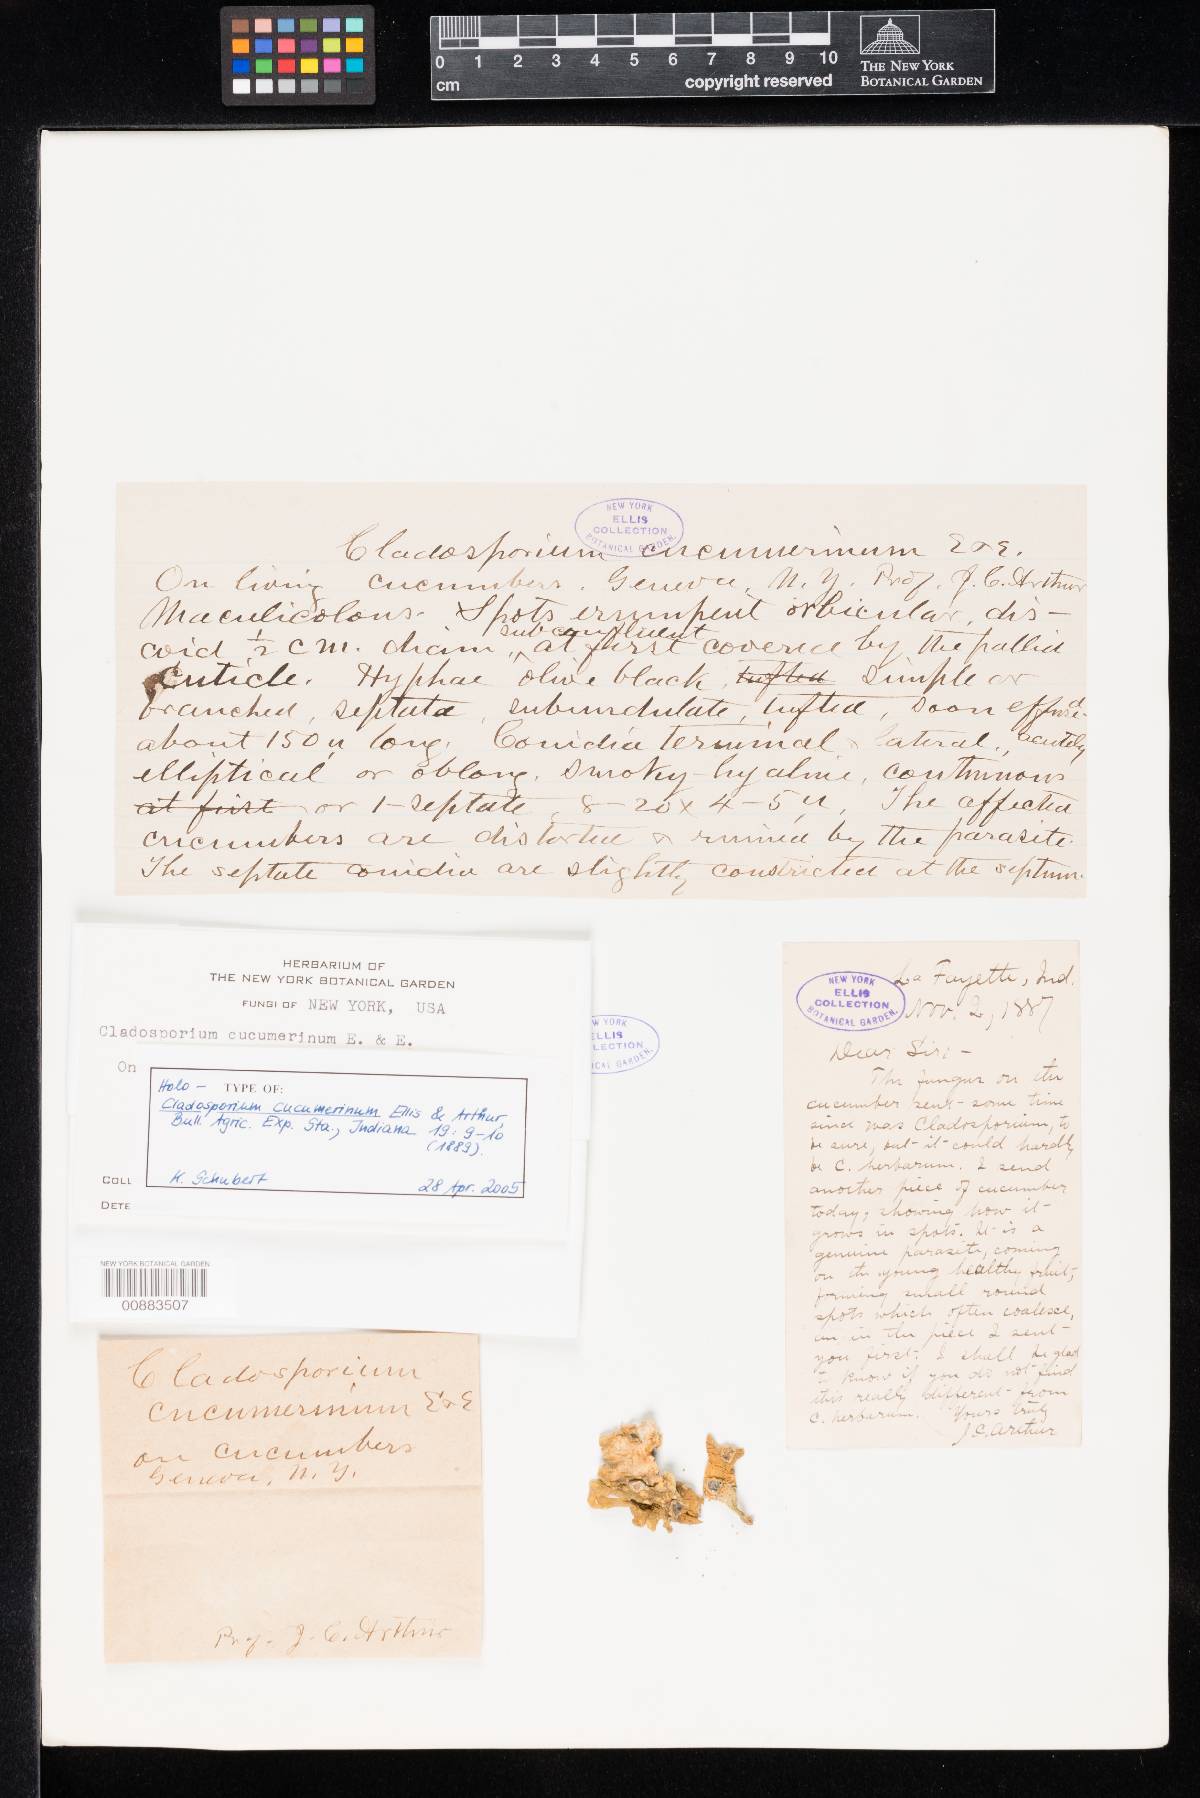 0 1 2 3 4 5 6 7 8 9 10
cm
copyright reserved
THE NEW YORK
BOTANICAL GARDEN
NEW YORK
ELLIS
COLLECTION
BOTANICAL GARDEN.
Cladosporium cucumerinum E&E.
On living cucumbers. Geneva, N.Y. Prof. J. C. Arthur
Maculicolous. Spots erumpent orbicular, dis-
subconfluent
coid ½ cm. diam, at first covered by the pallid
cuticle. Hyphae olive black, tufted simple or
branched, septate, subundulate, tufted, soon effused-
about 150 µ long. Conidia terminal & lateral., acutely
elliptical or oblong. smoky-hyaline, continuous
at first or 1-septate, 8-20 x 4-5 µ, The affected
cucumbers are distorted & ruined by the parasite.
The septate conidia are slightly constricted at the septum.
HERBARIUM OF
THE NEW YORK BOTANICAL GARDEN
FUNGI OF NEW YORK, USA
Cladosporium cucumerinum E. & E.
On
Holo- TYPE OF:
Cladosporium cucumerinum Ellis & Arthur,
Bull. Agric. Exp. Sta., Indiana 19: 9-10
(1889).
K. Schubert 28 Apr. 2005
COLL
DETE
NEW YORK BOTANICAL GARDEN
00883507
W YORK
ELLIS
LLECTION
ICAL GARDEN.
NEW YORK
ELLIS
COLLECTION
BOTANICAL GARDEN.
La Fayette, Ind.
Nov. 2, 1887
Dear Sir:-
The fungus on the
cucumber sent some time
since was Cladosporium, to
be sure, but it could hardly
be C. herbarum. I send
another piece of cucumber
today, showing how it
grows in spots. It is a
genuine parasite, coming
on the young healthy fruit,
forming small round
spots which often coalesce,
as in the piece I sent
you first. I shall be glad
to know if you do not find
this really different from
C. herbarum. Yours truly
J. C. Arthur
Cladosporium
cucumerinum E&E
on cucumbers
Geneva, N. Y.
Prof. J. C. Arthur